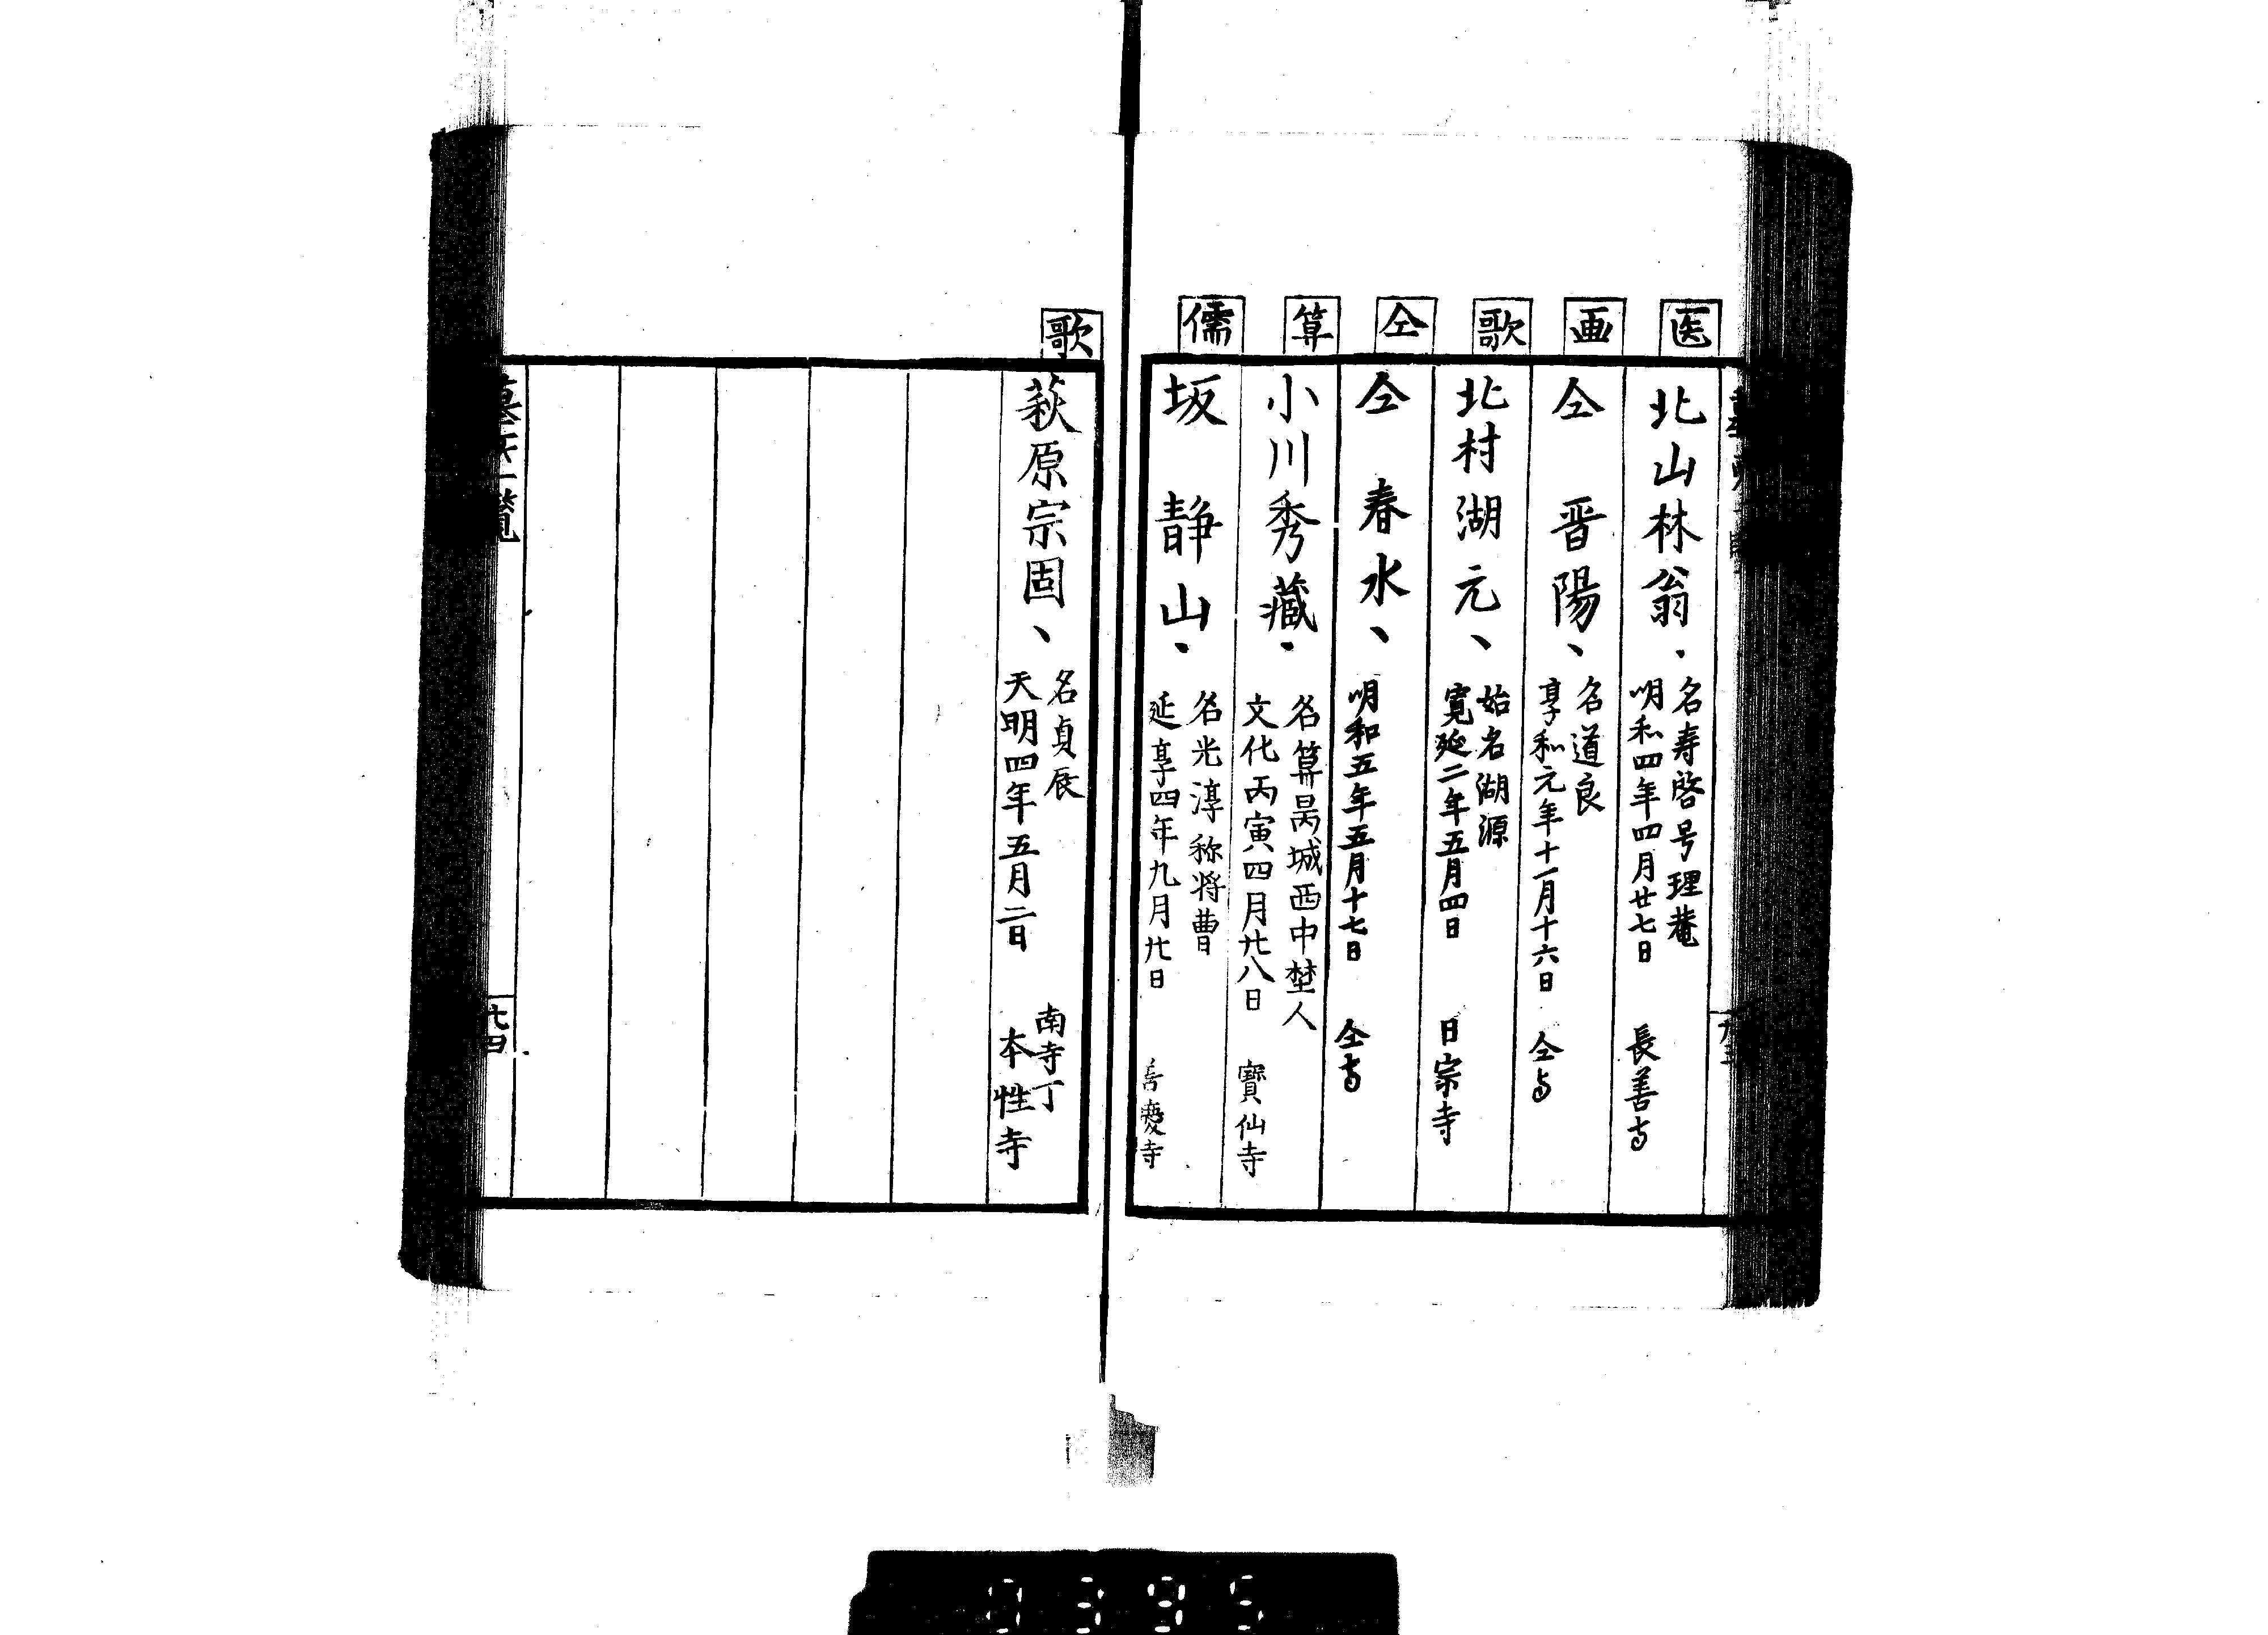 医
北山林翁、
名寿啓号理菴
明和四年四月廿七日
長善寺
画
仝 晋陽、
名道良
享和元年十一月十六日
仝寺
歌
北村湖元、
始名湖源
寛延二年五月四日
日宗寺
仝
仝 春水、
明和五年五月十七日
仝寺
算
小川秀藏、
名算昺城西中埜人
文化丙寅四月廿八日
寶仙寺
儒
坂 静山、
名光淳称将曹
延享四年九月廿日
善慶寺
歌
萩原宗固、
名貞辰
天明四年五月二日
南寺丁
本性寺
0395